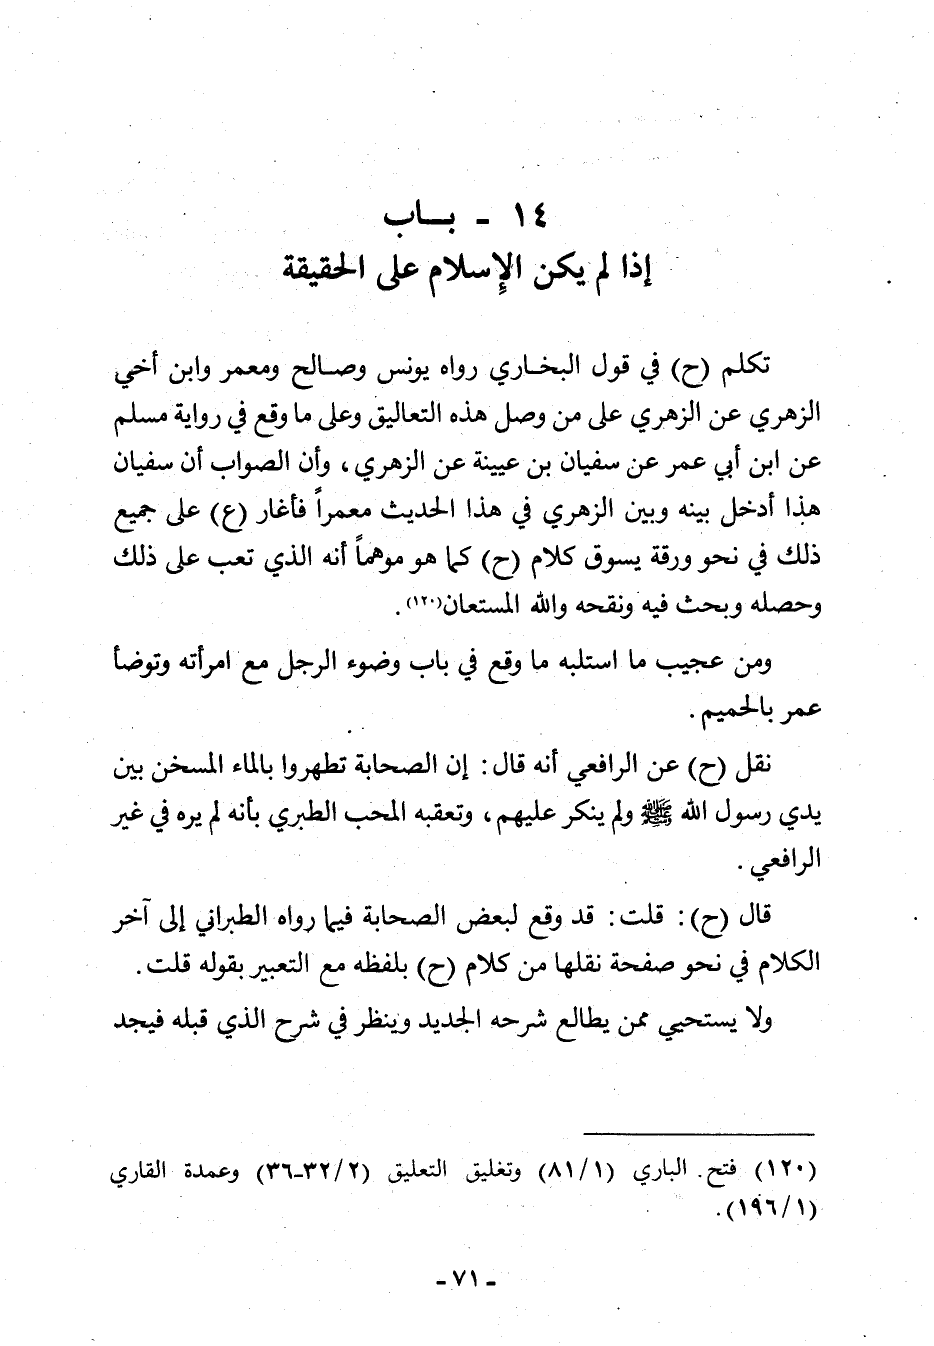 ١٤ - بــاب
إذا لم يكن الإسلام على الحقيقة
تكلم (ح) في قول البخـاري رواه يونس وصـالح ومعمر وابن أخي
الزهري عن الزهري على من وصل هذه التعاليق وعلى ما وقع في رواية مسلم
عن ابن أبي عمر عن سفيان بن عيينة عن الزهري، وأن الصواب أن سفيان
هذا أدخل بينه وبين الزهري في هذا الحديث معمراً فأغار (ع) على جميع
ذلك في نحو ورقة يسوق كلام (ح) كما هو موهماً أنه الذي تعب على ذلك
وحصله وبحث فيه ونقحه والله المستعان(١٢٠).
ومن عجيب ما استلبه ما وقع في باب وضوء الرجل مع امرأته وتوضأ
عمر بالحميم.
نقل (ح) عن الرافعي أنه قال: إن الصحابة تطهروا بالماء المسخن بين
يدي رسول الله ﷺ ولم ينكر عليهم، وتعقبه المحب الطبري بأنه لم يره في غير
الرافعي.
قال (ح): قلت: قد وقع لبعض الصحابة فيما رواه الطبراني إلى آخر
الكلام في نحو صفحة نقلها من كلام (ح) بلفظه مع التعبير بقوله قلت.
ولا يستحيي ممن يطالع شرحه الجديد وينظر في شرح الذي قبله فيجد
(١٢٠) فتح. الباري (٨١/١) وتغليق التعليق (٣٢/٢-٣٦) وعمدة القاري
(١٩٦/١).
- ٧١ -